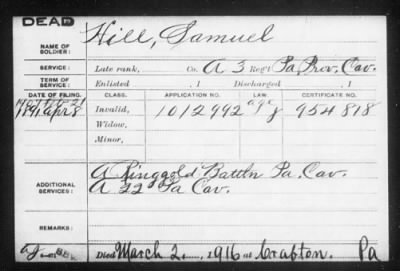 DEAD
NAME OF SOLDIER: Hill, Samuel
SERVICE: Late rank, Co. A 3 Reg't Pa. Prov. Cav.
TERM OF SERVICE: Enlisted , 1 Discharged , 1
DATE OF FILING. CLASS. APPLICATION NO. LAW. CERTIFICATE NO.
1891 Apr 8 Invalid, 1012992 954818
Widow,
Minor,
ADDITIONAL SERVICES: A Ringgold Battln Pa. Cav.
A 22 Pa Cav.
REMARKS:
Died March 2, 1916 at Crafton. Pa